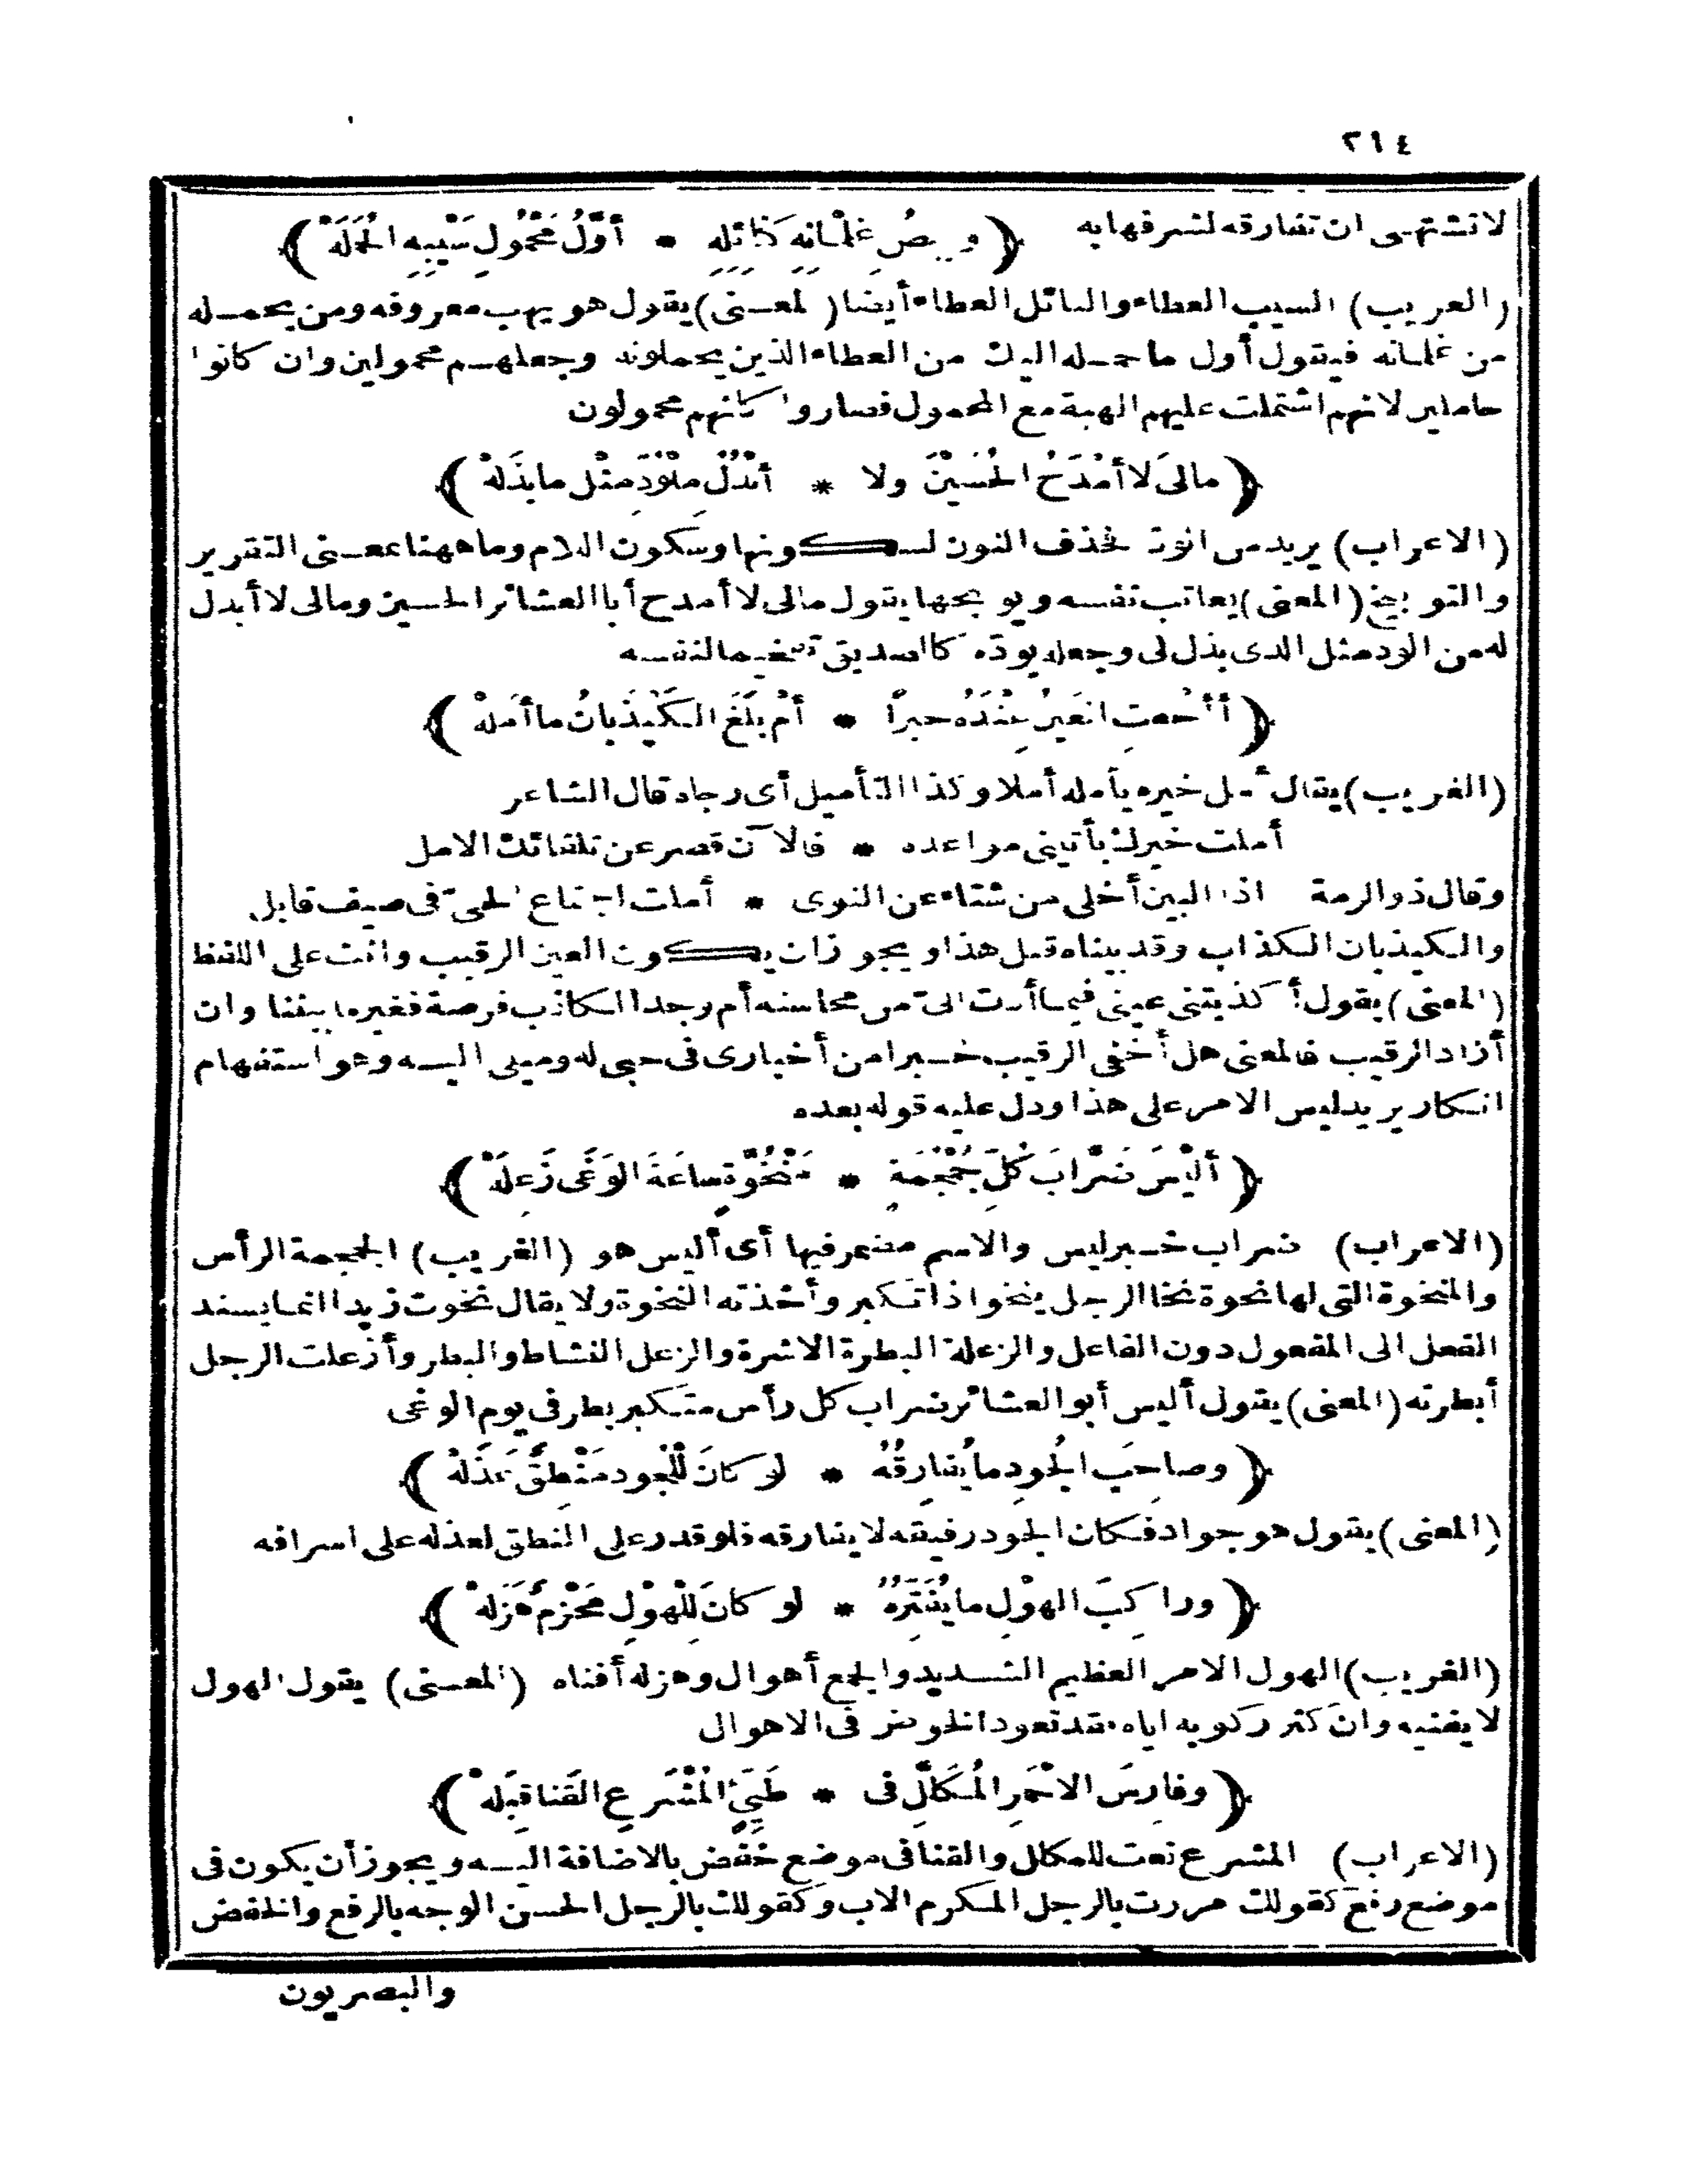 ٢٦٤
لا تشتهى ان تفارقه لشرفها به ﴿ وبيضُ غلْمانِه كَنائلِهِ * أَوّلُ مَحْمُولِ سَيْبِهِ الحَمَلَهْ ﴾
(الغريب) السيب العطاء والنائل العطاء أيضا (المعنى) يقول هو يهب معروفه ومن يحمله
من غلمانه فيقول أول ما حمله اليك من العطاء الذين يحملونه وجعلهم محمولين وان كانوا
حاملين لانهم اشتملت عليهم الهبة مع المحمول فصاروا كانهم محمولون
﴿ مالىَ لا أَمْدَحُ الحُسَيْنَ ولا * أَبْذُلُ مِلْوُدِّ مِثْل ما بذَلَهْ ﴾
(الاعراب) يريد من الودّ فحذف النون لسكونها وسكون اللام وما ههنا بمعنى التقرير
والتوبيخ (المعنى) يعاتب نفسه ويوبخها يقول مالى لا أمدح أبا العشائر الحسين ومالى لا أبذل
له من الودّ مثل الذى بذل لى وجعله يودّه كالصديق تفخيما لنفسه
﴿ أَأَخْفَتِ العَيْنُ عِنْدَهُ خبراً * أَمْ بَلَغَ الكَيْذَبانُ ما أَمَلَهْ ﴾
(الغريب) يقال أمل خيره يأمله أملا وكذا التأميل أى رجاه قال الشاعر
أملت خيرك يأتينى مواعده * فالآن قصر عن تلقائك الامل
وقال ذو الرمة اذا البين أجلى من شتاء عن النوى * أملت اجتماع الحىّ فى صيف قابل
والكيذبان الكذاب وقد بيناه قبل هذا ويجوز ان يكون العين الرقيب وانث على اللفظ
(المعنى) يقول أكذبتنى عينى فيما أدت الىّ من محاسنه أم وجد الكاذب فرصة فغير ما بيننا وان
أراد الرقيب فالمعنى هل أخفى الرقيب خبرا من أخبارى فى حبى له وميلى اليه وهو استفهام
انكار يريد ليس الامر على هذا ودل عليه قوله بعده
﴿ أَلَيْسَ ضَرَّابَ كُلِّ جُمْجُمَةٍ * مَنْخُوَّةٍ ساعَةَ الوَغَى زَعِلَهْ ﴾
(الاعراب) ضراب خبر ليس والاسم مضمر فيها أى أليس هو (الغريب) الجمجمة الرأس
والمنخوة التى لها نخوة نخا الرجل ينخو اذا تكبر وأخذته النخوة ولا يقال نخوت زيدا انما يسند
الفعل الى المفعول دون الفاعل والزعلة البطرة الاشرة والزعل النشاط والبطر وأزعلت الرجل
أبطرته (المعنى) يقول أليس أبو العشائر ضراب كل رأس متكبر بطر فى يوم الوغى
﴿ وصاحبَ الجُودِ ما يُفارقُهُ * لو كانَ لِلْجُودِ مَنْطِقٌ عَذَلَهْ ﴾
(المعنى) يقول هو جواد فكان الجود رفيقه لا يفارقه فلو قدر على النطق لعذله على اسرافه
﴿ وراكِبَ الهوْلِ ما يُفَتِّرُهُ * لو كانَ لِلْهَوْلِ مَحْزِمٌ هَزَلَهْ ﴾
(الغريب) الهول الامر العظيم الشديد والجمع أهوال وهزله أفناه (المعنى) يقول الهول
لا يفنيه وان كثر ركوبه اياه فقد تعود الخوض فى الاهوال
﴿ وفارسَ الاحْمَرِ المُكَلَّلِ فى * طَيّئٍ المُشْرَعِ القَنا قِبَلَهْ ﴾
(الاعراب) المشرع نعت للمكلل والقنا فى موضع خفض بالاضافة اليه ويجوز أن يكون فى
موضع رفع كقولك مررت بالرجل المكرم الاب وكقولك بالرجل الحسن الوجه بالرفع والخفض
والبصريون